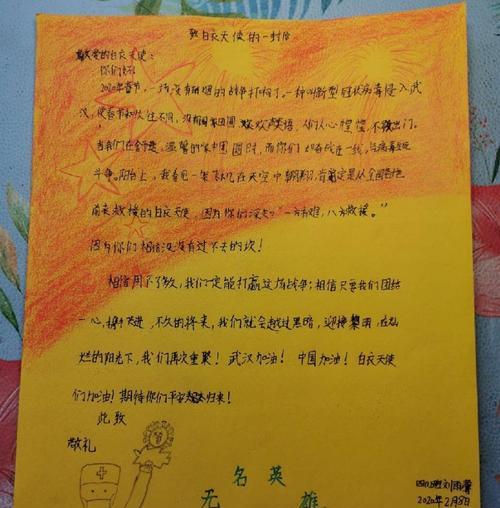 致白衣天使的一封信
敬爱的白衣天使:
你们好
2020年春节,一场没有硝烟的战争打响了。一种叫新型冠状病毒侵入武
汉,使春节和以往不同,没有阖家团圆、欢歌笑语,人们人心惶惶,不敢出门。
当我们在舒适、温馨的家中团圆时,而你们却奋战在一线,与病毒生死
斗争。阳台上,我看见一架飞机在天空中,肯定是从全国各地
前来救援的白衣天使,因为你们深知"一方有难,八方救援。"
因为你们相信没没有过不去的坎!
相信用不了多久,我们定能打赢这场战争;相信只要我们团结
一心,携手共进,不久的将来,我们就会越过黑暗,迎接黎明,在灿
烂的阳光下,我们再次重聚!武汉加油!中国加油!白衣天使
们加油!期待你们平安归来!
此致
敬礼
无名英雄
2020年2月8日